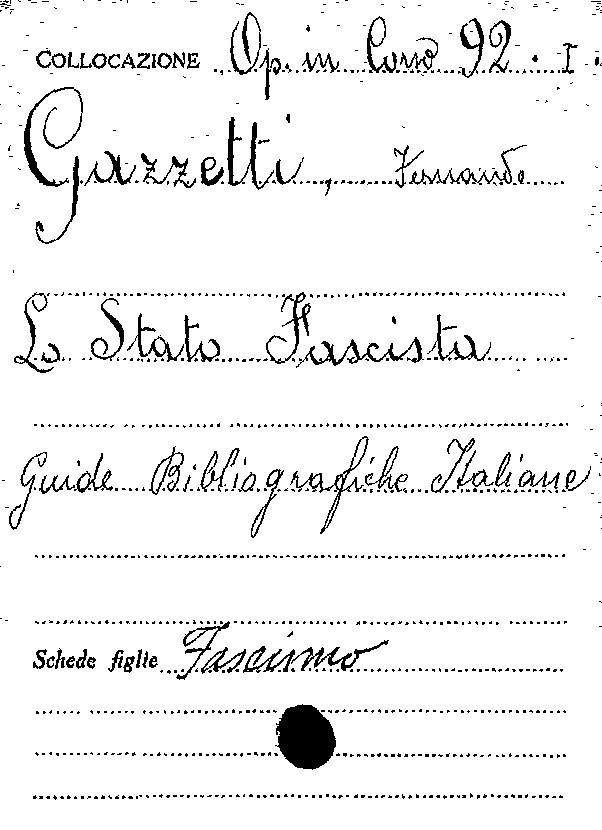 COLLOCAZIONE Op. in Corso 92. I.
Gazzetti, Fernando
Lo Stato Fascista
Guide Bibliografiche Italiane
Schede figlie Fascismo